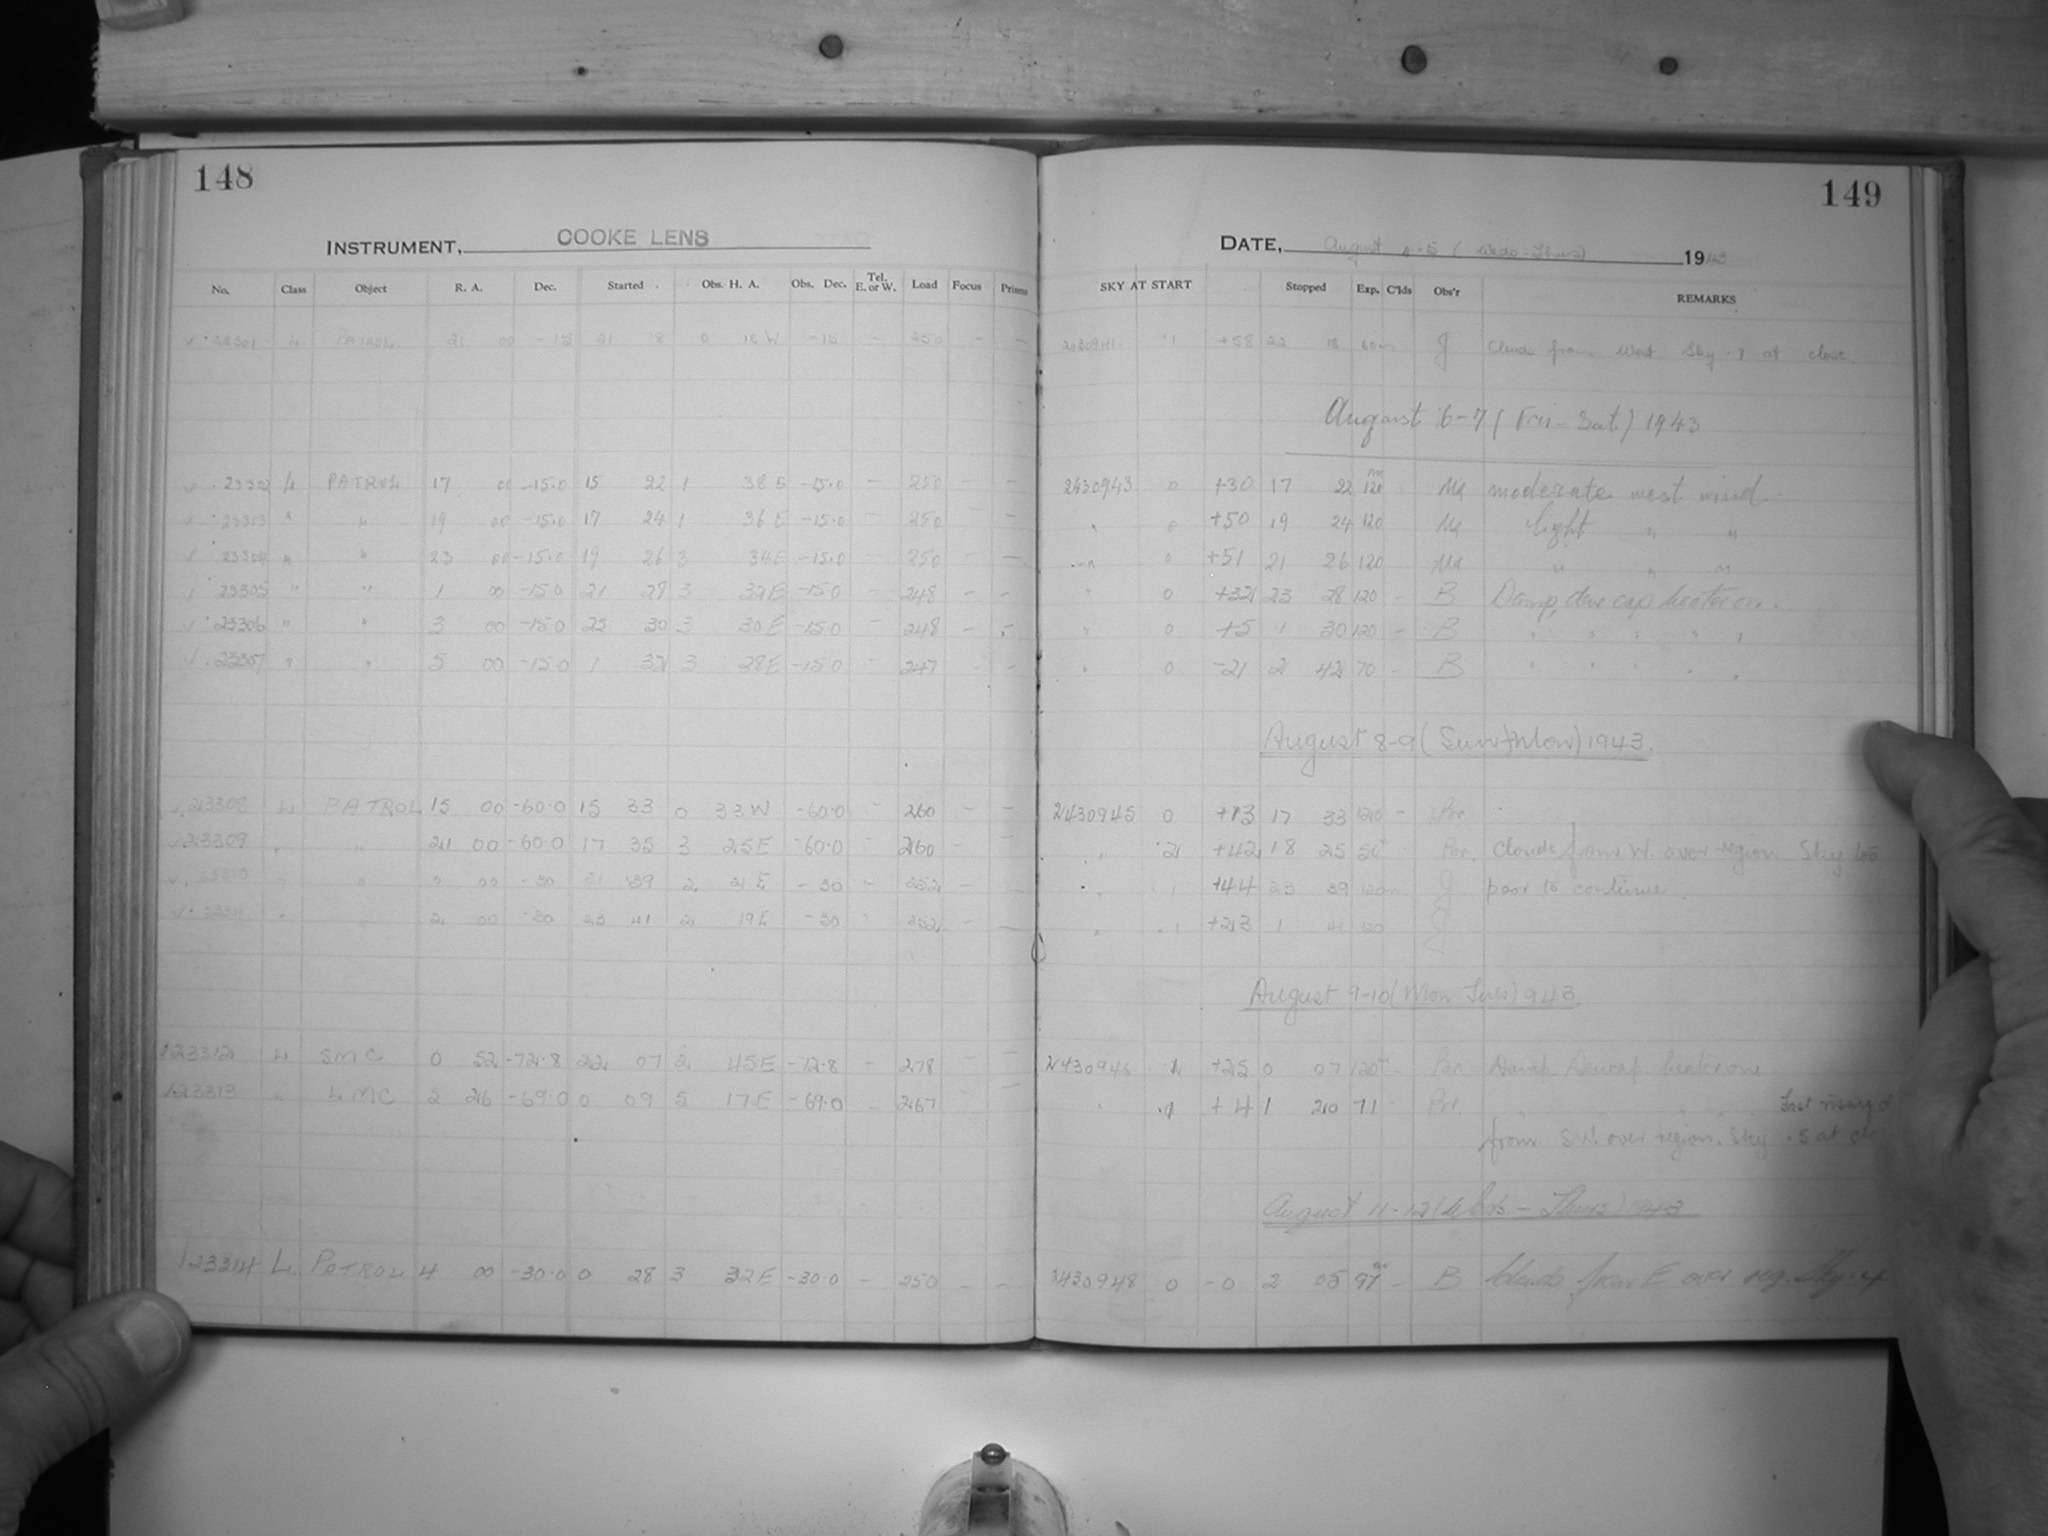 148
INSTRUMENT, COOKE LENS
No. Class Object R. A. Dec. Started Obs. H. A. Obs. Dec. Tel. E. or W. Load Focus Prisms
PATROL 21 00 -15 21 18 0 18 W -15 - 250 - -
23302 L PATROL 17 00 -15.0 15 22 1 38 E -15.0 - 250 - -
23303 " " 19 00 -15.0 17 24 1 36 E -15.0 - 250 - -
23304 " " 23 00 -15.0 19 26 3 34E -15.0 - 250 - -
23305 " " 1 00 -15.0 21 28 3 32E -15.0 - 248 - -
23306 " " 3 00 -15.0 23 30 3 30E -15.0 - 248 - -
5 00 -15.0 1 32 3 28E -15.0 - 247 - -
23308 L PATROL 15 00 -60.0 15 33 0 33W -60.0 - 260 - -
23309 " " 21 00 -60.0 17 35 3 25E -60.0 - 260 - -
23310 " " 0 00 -30 21 39 2 21 E -30 - 252 - -
23311 " " 2 00 -30 23 41 2 19E -30 252 - -
23312 L SMC 0 52 -72.8 22 07 2 45E -72.8 - 278 -
23313 " LMC 5 26 -69.0 0 09 5 17E -69.0 - 267 -
23314 L PATROL 4 00 -30.0 0 28 3 32E -30.0 - 250 - -
149
DATE, August 4-5 (Weds-Thurs) 1943
SKY AT START Stopped Exp. C'lds Obs'r REMARKS
2430941 .1 +58 22 18 60m J Clouds from West. Sky .7 at close.
August 6-7 (Fri-Sat) 1943
2430943 0 +30 17 22 120m moderate west wind
" 0 +50 19 24 120 light " "
" 0 +51 21 26 120 " " "
" 0 +32 23 28 120 - B Damp, dew cap heater on.
" 0 +5 1 30 120 - B " " " " "
" 0 -21 2 42 70 - B " " " " "
August 8-9 (Sun-Mon) 1943.
2430945 0 +13 17 33 120 - Por.
" .2 +42 18 25 50m - Por. Clouds from W. over region Sky too
" .1 +44 23 39 120m J poor to continue.
" .1 +23 1 41 120 J
August 9-10 (Mon Tues) 1943.
2430946 .1 +25 0 07 120m - Por. Damp. Dewcap heater on
" .1 +4 1 20 71 - Por. " Fast rising
from S.W. over region. Sky .5 at
August 11-12 (Weds-Thurs) 1943
2430948 0 -0 2 05 97m - B Clouds from E over reg. Sky .4